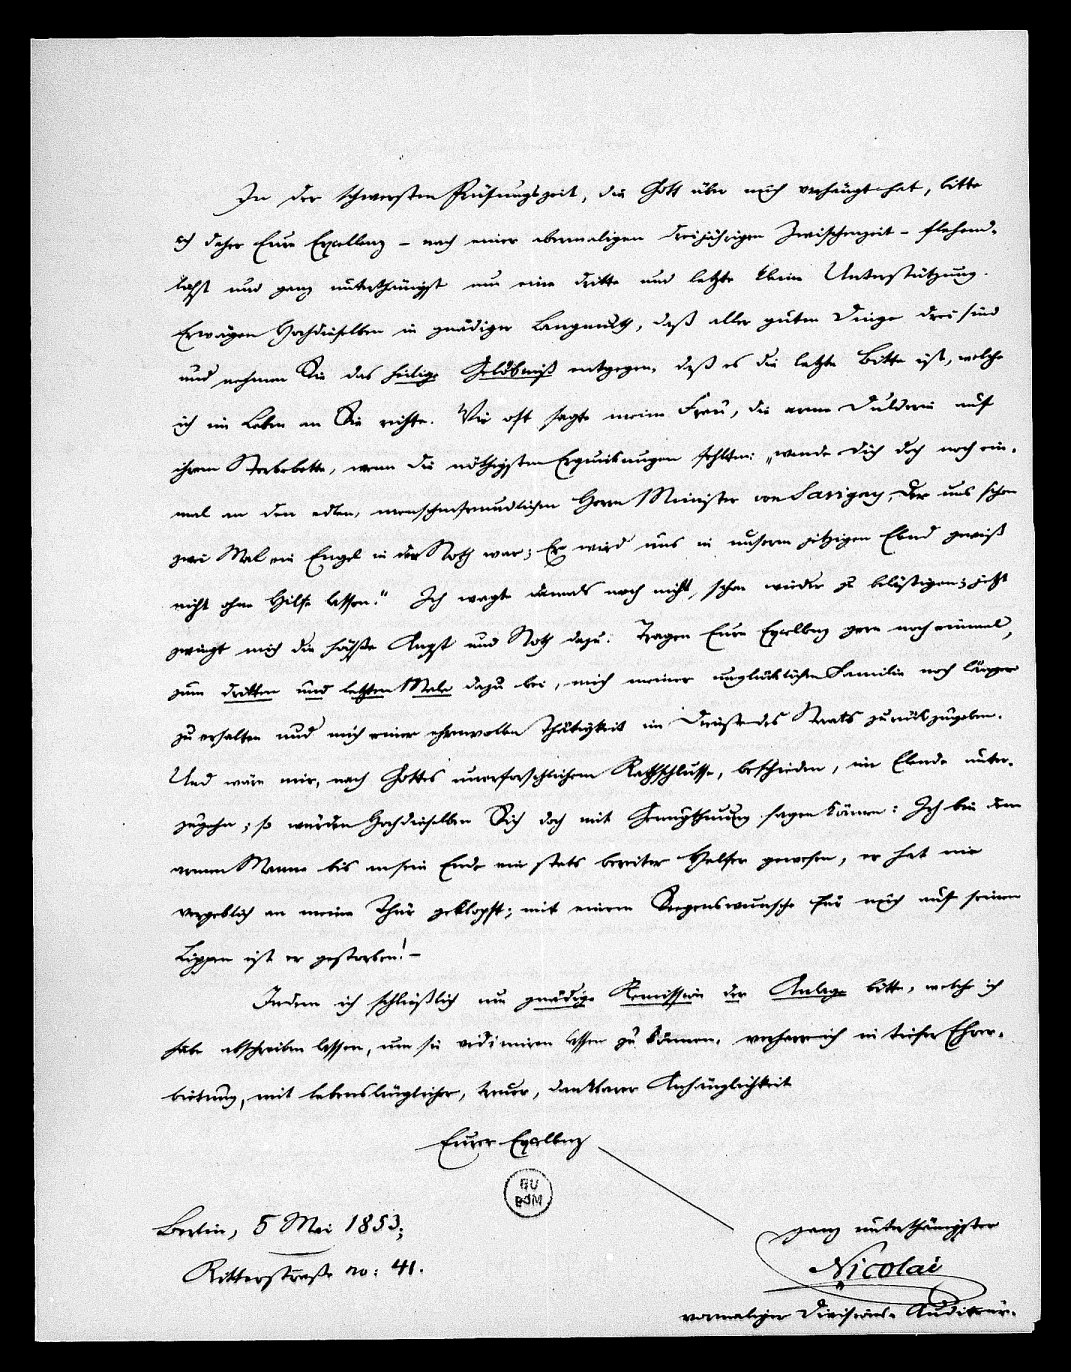 In der schwersten Prüfungszeit, die Gott über mich verhängt hat, bitte
ich daher Eure Excellenz – nach einer abermaligen dreijährigen Zwischenzeit – flehend-
lichst und ganz unterthänigst um eine dritte und letzte kleine Unterstützung.
Erwägen Hochdieselben in gnädiger Langmuth, daß aller guten Dinge drei sind
und nehmen Sie das heilige Gelöbniß entgegen, daß es die letzte Bitte ist, welche
ich im Leben an Sie richte. Wie oft sagte meine Frau, die arme Dulderin auf
ihrem Sterbebette, wenn die nöthigsten Erquickungen fehlten: „wende Dich doch noch ein-
mal an den edlen, menschenfreundlichen Herrn Minister von Savigny, der uns schon
zwei Mal ein Engel in der Noth war; Er wird uns in unserm jetzigen Elend gewiß
nicht ohne Hilfe lassen.“ Ich wagte damals noch nicht, schon wieder zu belästigen; jetzt
zwingt mich die höchste Angst und Noth dazu. Tragen Eure Excellenz gern noch einmal,
zum dritten und letzten Male dazu bei, mich meiner unglücklichen Familie noch länger
zu erhalten und mich einer ehrenvollen Thätigkeit im Dienste des Staats zurückzugeben.
Und wäre mir, nach Gottes unerforschlichem Rathschlusse, beschieden, im Elende unter-
zugehn; so würden Hochdieselben Sich doch mit Genugthuung sagen können: Ich bin dem
armen Manne bis an sein Ende ein stets bereiter Helfer gewesen, er hat nie
vergeblich an meine Thür geklopft; mit einem Segenswunsche für mich auf seinen
Lippen ist er gestorben! –
Indem ich schließlich um gnädige Remission der Anlage bitte, welche ich
habe abschreiben lassen, um sie vidimiren lassen zu können, verharre ich in tiefer Ehrer-
bietung, mit lebenslänglicher, treuer, dankbarer Anhänglichkeit
Eurer Excellenz
BU
BDM
Berlin, 5 Mai 1853;
ganz unterthänigster
Ritterstraße no: 41.
Nicolai
vormaliger Divisions-Auditeur.